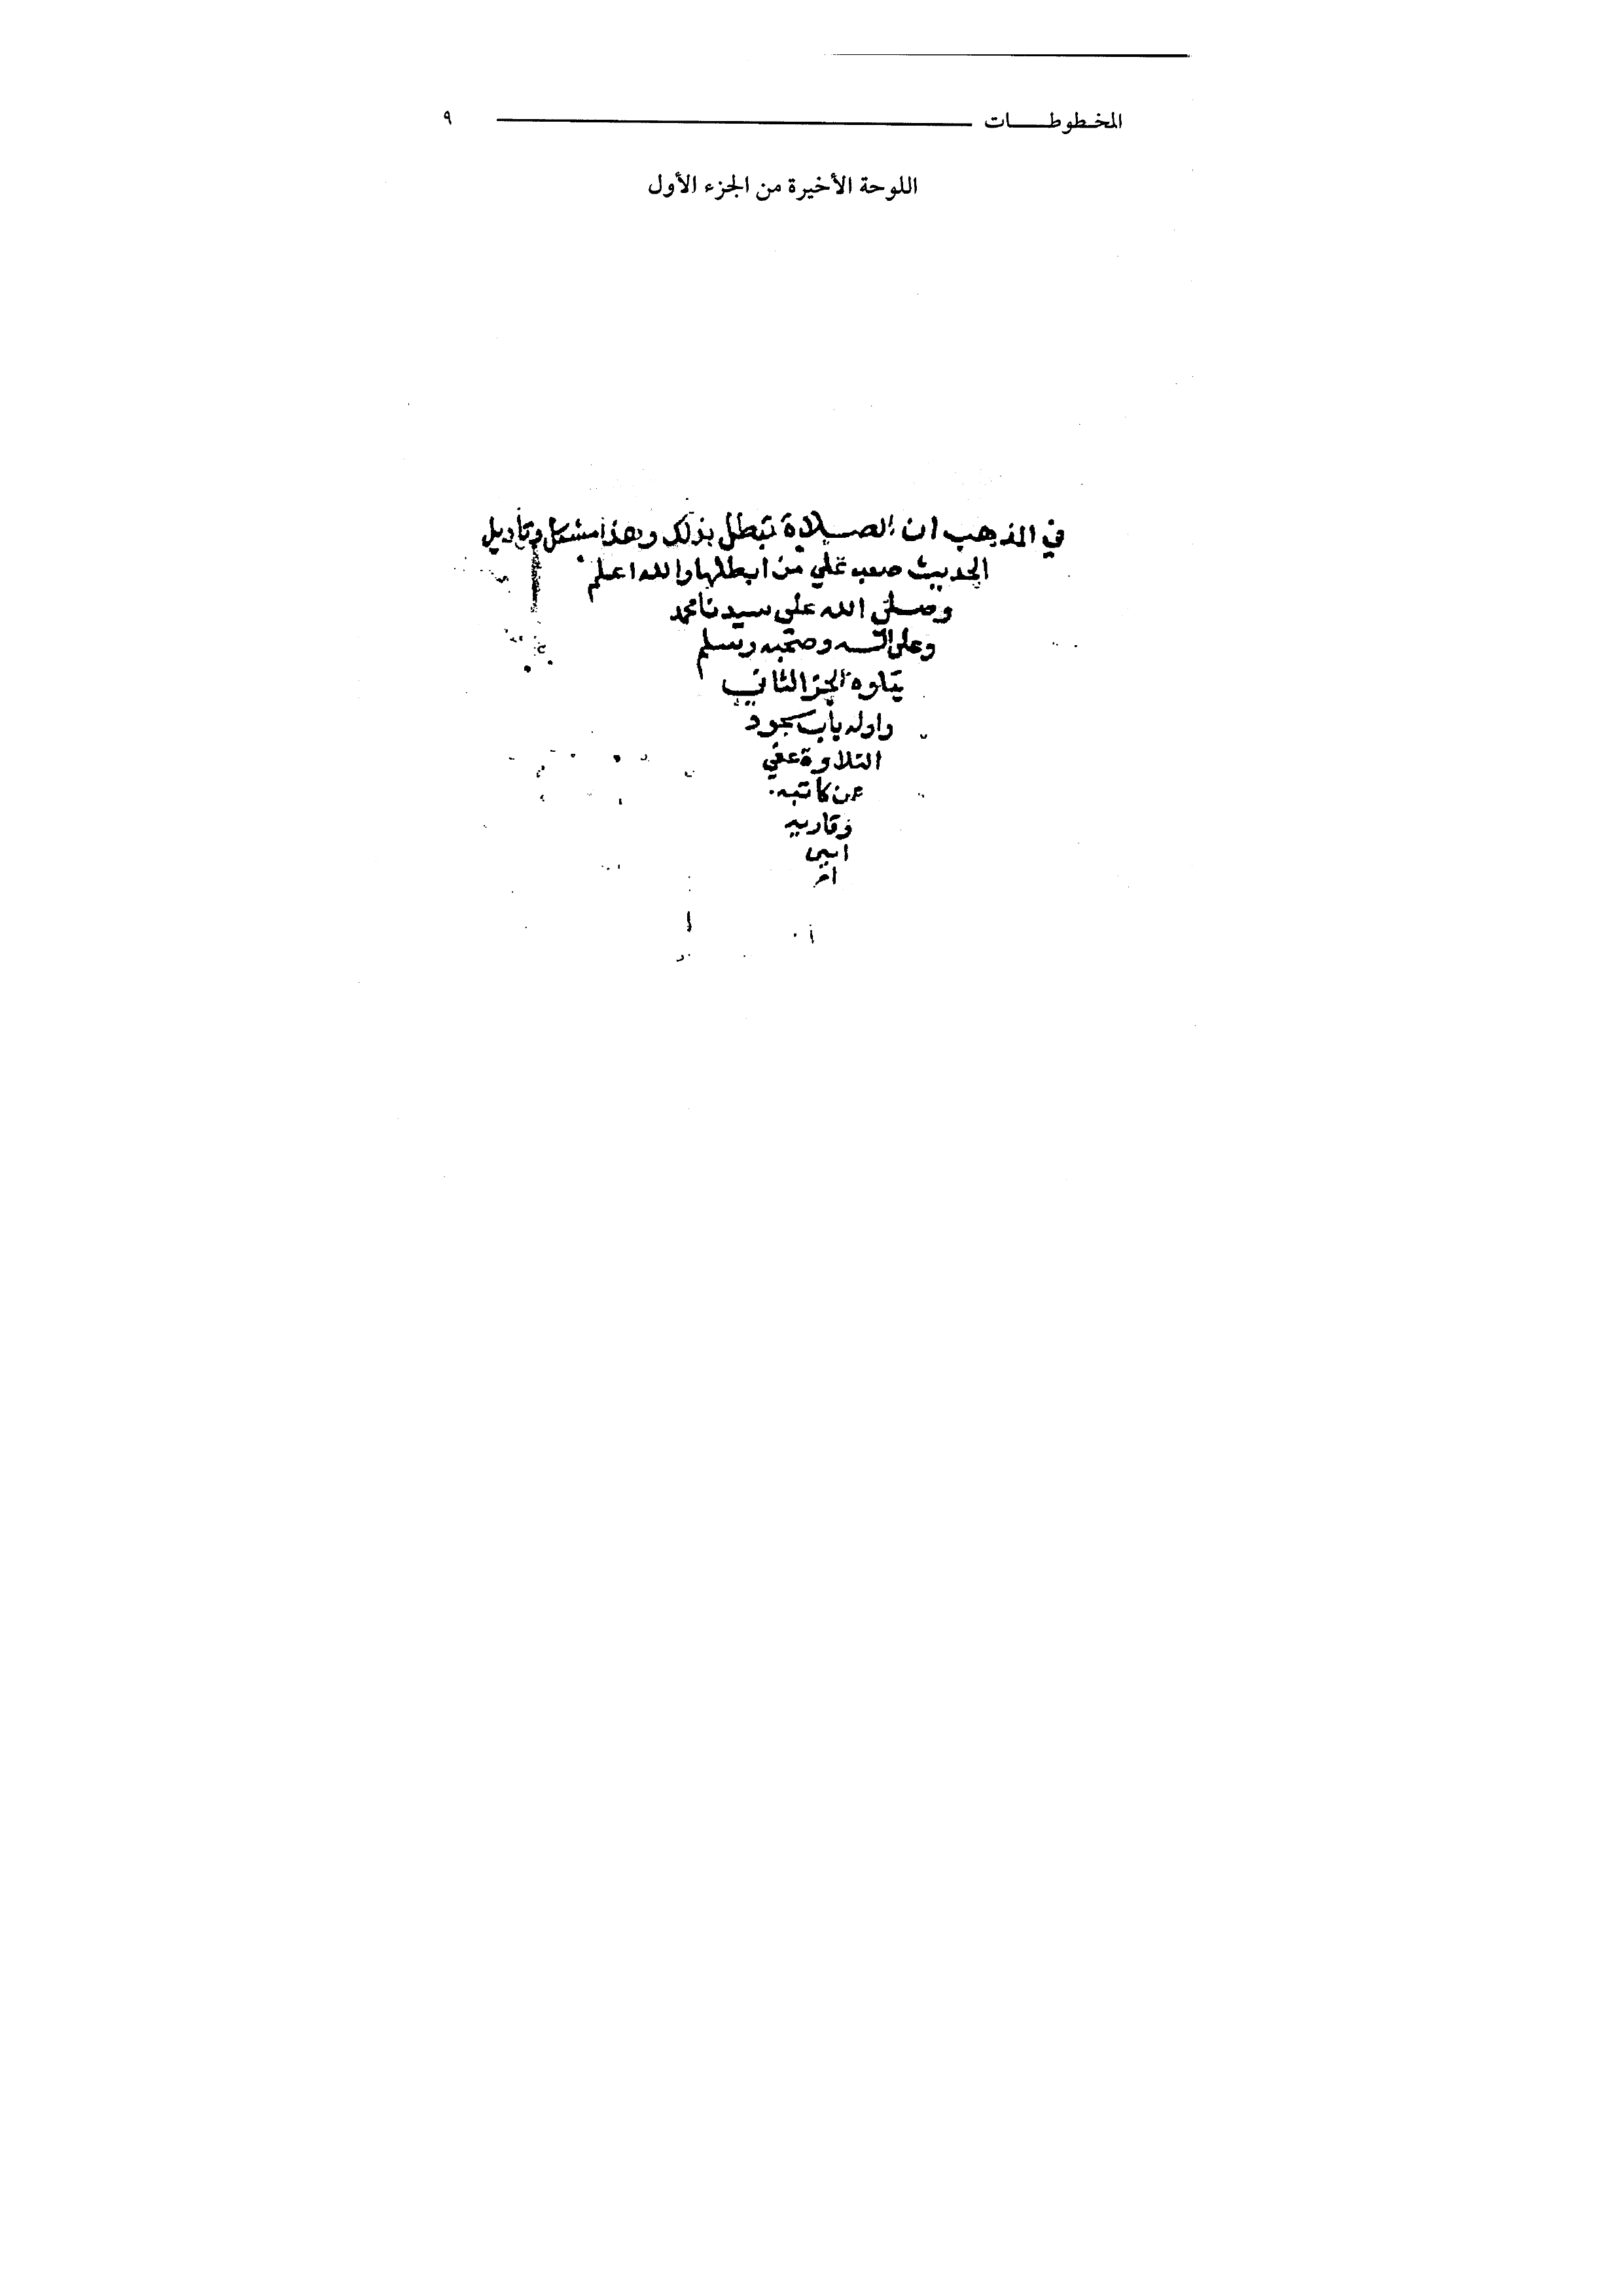 المخطوطات ٩
اللوحة الأخيرة من الجزء الأول
في المذهب ان الصلاة تبطل بذلك وهذا مشكل وتأويل
الحديث صعب علي من ابطلها والله اعلم
وصلى الله على سيدنا محمد
وعلى اله وصحبه وسلم
يتلوه الجز الثاني
واوله باب سجود
التلاوة عفي
عن كاتبه
وقاريه